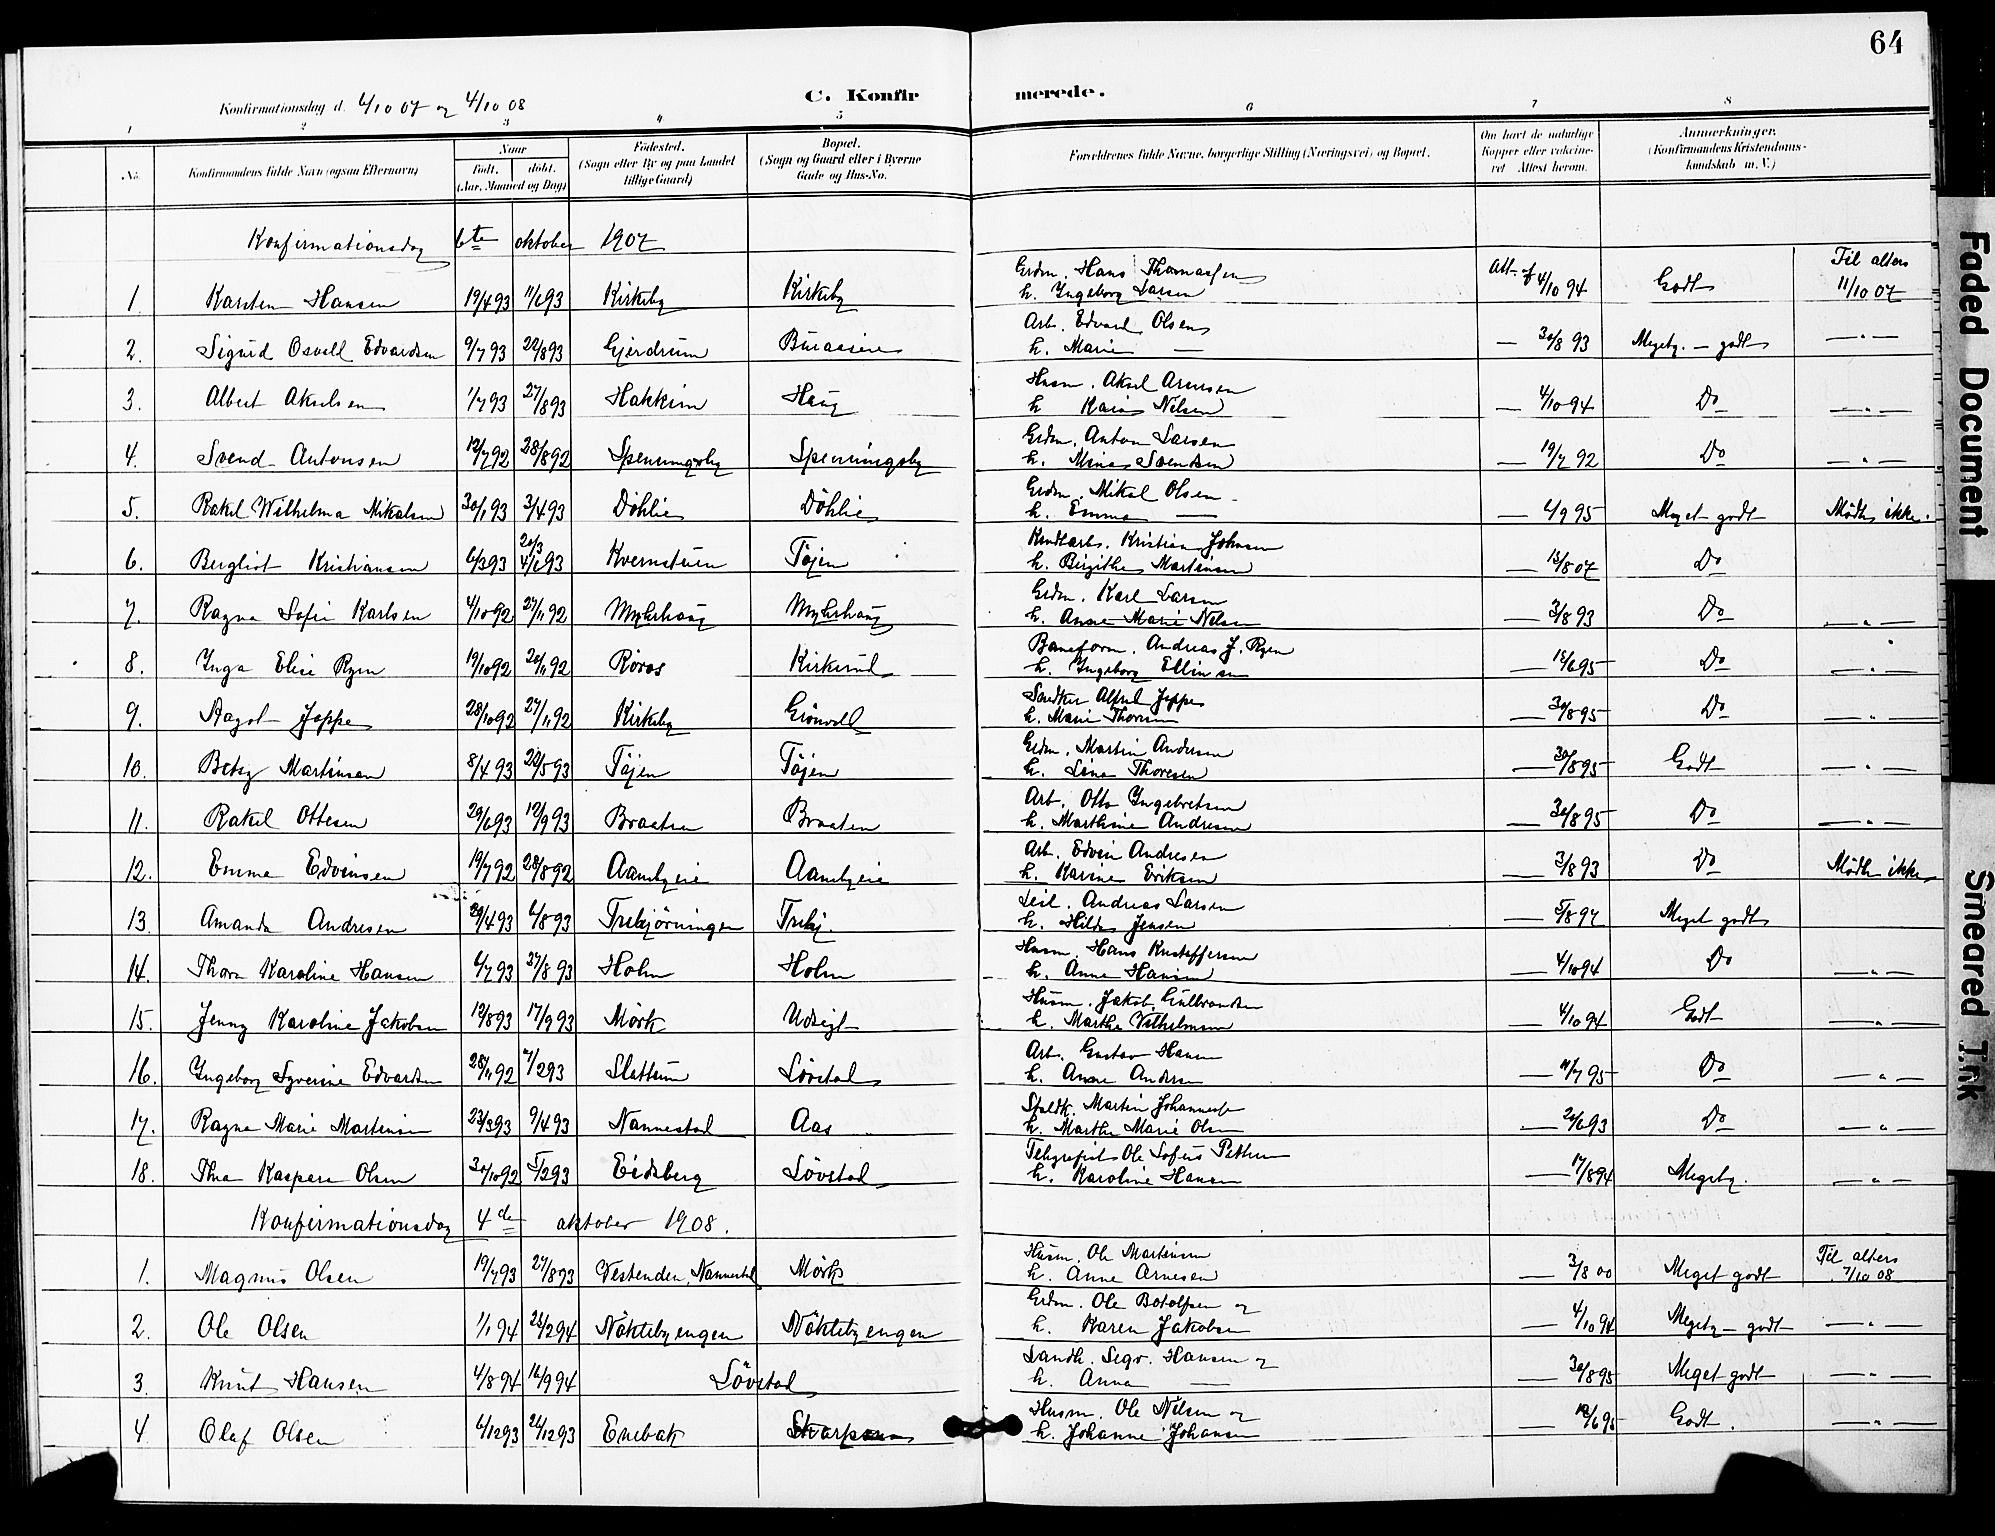 64
Konfirmationsdag d. 6/10 07 og 4/10 08
C. Konfirmerede.
1 2 3 4 5 6 7 8
No.
Konfirmandens fulde Navn (ogsaa Efternavn)
Naar
Født. døbt.
(Aar, Maaned og Dag)
Fødested.
(Sogn eller By og paa Landet
tillige Gaard)
Bopæl.
(Sogn og Gaard eller i Byerne
Gade og Hus-No.
Forældrenes fulde Navne, borgerlige Stilling (Næringsvei) og Bopæl.
Om havt de naturlige
Kopper eller vakcine-
ret Attest herom.
Anmerkninger.
(Konfirmandens Kristendoms-
kundskab m. V.)
Konfirmationsdag 6te oktober 1907
1. Karsten Hansen 19/4 93 11/6 93 Kirkeby Kirkeby Grdm. Hans Thomassen h. Ingeborg Larsen Att. af 4/10 94 Godt Til alters 11/10 07
2. Sigurd Osvald Edvardsen 9/7 93 22/8 93 Gjerdrum Arb. Edvard Olsen h. Marie — — 30/8 93 Megetg. - godt — " —
3. Albert Akselsen 1/7 93 27/8 93 Hakkim Haug Husm. Aksel Arnesen h. Karin Nilsen — 4/10 94 Do — " —
4. Svend Antonsen 12/7 92 28/8 92 Spenningsby Spenningsby Grdm. Anton Larsen h. Mina Svendsen — 19/7 92 Do — " —
5. Rakel Wilhelma Mikalsen 30/1 93 3/4 93 Döhlie Döhlie Grdm. Mikal Olsen h. Emma — — 6/9 95 Meget godt Mødte ikke.
6. Bergliot Kristiansen 6/3 93 20/3 4/6 93 Kvernstuen Töjen Kristian Johnsen h. Birgithe Martinsen — 13/8 07 Do
7. Ragna Sofie Karlsen 4/10 92 27/11 92 Myhrhaug Myhrhaug Grdm. Karl Larsen h. Anne Marie Nilsen — 3/8 93 Do — " —
8. Inga Elise Ryen 19/10 92 20/11 92 Röros Kirkerud Baneform. Andreas J. Ryen h. Ingeborg Ellinsen — 15/6 95 Do — " —
9. Aagot Jeppe 28/10 92 27/11 92 Kirkeby Grönvold Snedker Alfred Jeppe h. Marie Thorsen — 30/8 95 Do — " —
10. Betsy Martinsen 8/4 93 22/5 93 Töjen Töjen Grdm. Martin Andersen h. Lina Thoresen — 30/8 95 Godt — " —
11. Rakel Ottesen 29/6 93 12/9 93 Braaten Braaten Arb. Otto Ingebretsen h. Marthine Andresen — 30/8 95 Do — " —
12. Emma Edvinsen 19/7 92 28/8 92 Aambyeie Aambyeie Arb. Edvin Andresen h. Karine Eriksen — 3/8 93 Do Mødte ikke
13. Amanda Andresen 29/4 93 6/8 93 Trekjörningen Trekj. Leil. Andreas Larsen h. Hilda Jensen — 5/8 97 Meget godt
14. Thora Karoline Hansen 6/7 93 27/8 93 Holm Holm Husm. Hans Kristoffersen h. Anne Hansen — 4/10 94 Do — " —
15. Jenny Karoline Jakobsen 12/8 93 17/9 93 Mörk Udsigt Husm. Jakob Gulbrandsen h. Marthe Vilhelmsen — 4/10 94 Godt — " —
16. Ingeborg Syverine Edvardsen 28/11 92 7/2 93 Slattum Lövstad Arb. Gustav Hansen h. Anne Andersen — 11/7 95 Do — " —
17. Ragna Marie Martinsen 23/3 93 9/4 93 Nannestad Aas Martin Johannesen h. Marthe Marie Olsen — 20/6 93 Do — " —
18. Thea Kaspara Olsen 30/10 92 5/2 93 Eidsberg Lövstad Telegrafist Ole Sofus Pettersen h. Karoline Hansen — 17/8 94 Megetg. — " —
Konfirmationsdag 4de oktober 1908.
1. Magnus Olsen 19/7 93 27/8 93 Vestenden, Nannestad Mörk Husm. Ole Martinsen h. Anne Arnesen — 3/8 00 Meget godt Til alters 7/10 08
2. Ole Olsen 1/1 94 25/2 94 Nöktebyengen Nöktebyengen Grdm. Ole Botolfsen og h. Karen Jakobsen — 4/10 94 Megetg - godt — " —
3. Knut Hansen 4/8 94 16/9 94 Lövstad Landh. Segv. Hansen og h. Anna — — 30/8 95 Meget godt — " —
4 Olaf Olsen 6/12 93 26/12 93 Enebak Husm. Ole Nilsen og h. Johanne Johansen — 12/6 95 Godt. — " —
Faded Document
Smeared Ink